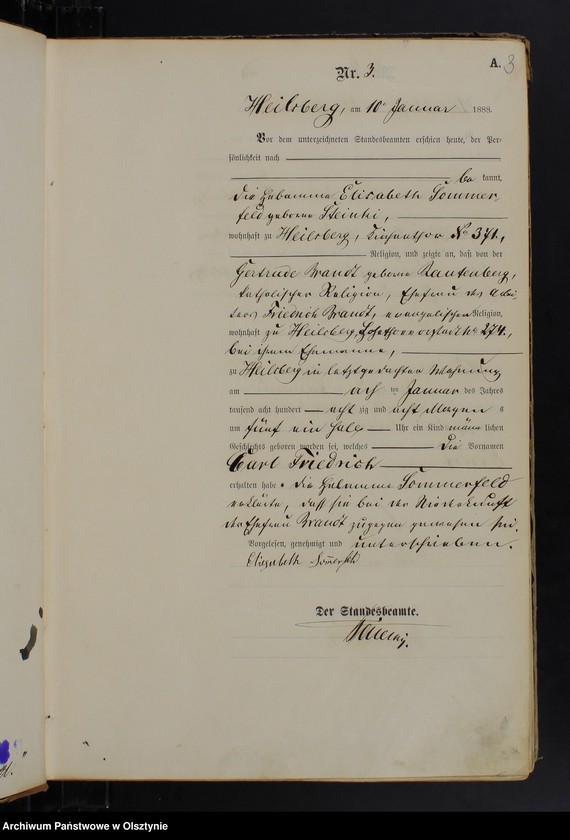 A. 3
Nr. 3.
Heilsberg, am 10t Januar 1888.
Vor dem unterzeichneten Standesbeamten erschien heute, der Per-
sönlichkeit nach
be kannt,
die Hebamme Elisabeth Sommer-
feld geborne Steinki,
wohnhaft zu Heilsberg, Kirchenthor No 371,
Religion, und zeigte an, daß von der
Gertrude Brandt geborne Rautenberg,
katholischer Religion, Ehefrau des Arbei-
ters Friedrich Brandt, evangelischer Religion,
wohnhaft zu Heilsberg, Hohethorvorstadt No 274,
bei ihrem Ehemanne,
zu Heilsberg in letztgedachter Wohnung
am acht ten Januar des Jahres
tausend acht hundert acht zig und acht Morgens
um fünf ein halb Uhr ein Kind männ lichen
Geschlechts geboren worden sei, welches die Vornamen
Carl Friedrich
erhalten habe. Die Hebamme Sommerfeld
erklärte, daß sie bei der Niederkunft
der Ehefrau Brandt zugegen gewesen sei.
Vorgelesen, genehmigt und unterschrieben.
Eliesabeth Somerfeld
Der Standesbeamte.
Archiwum Państwowe w Olsztynie